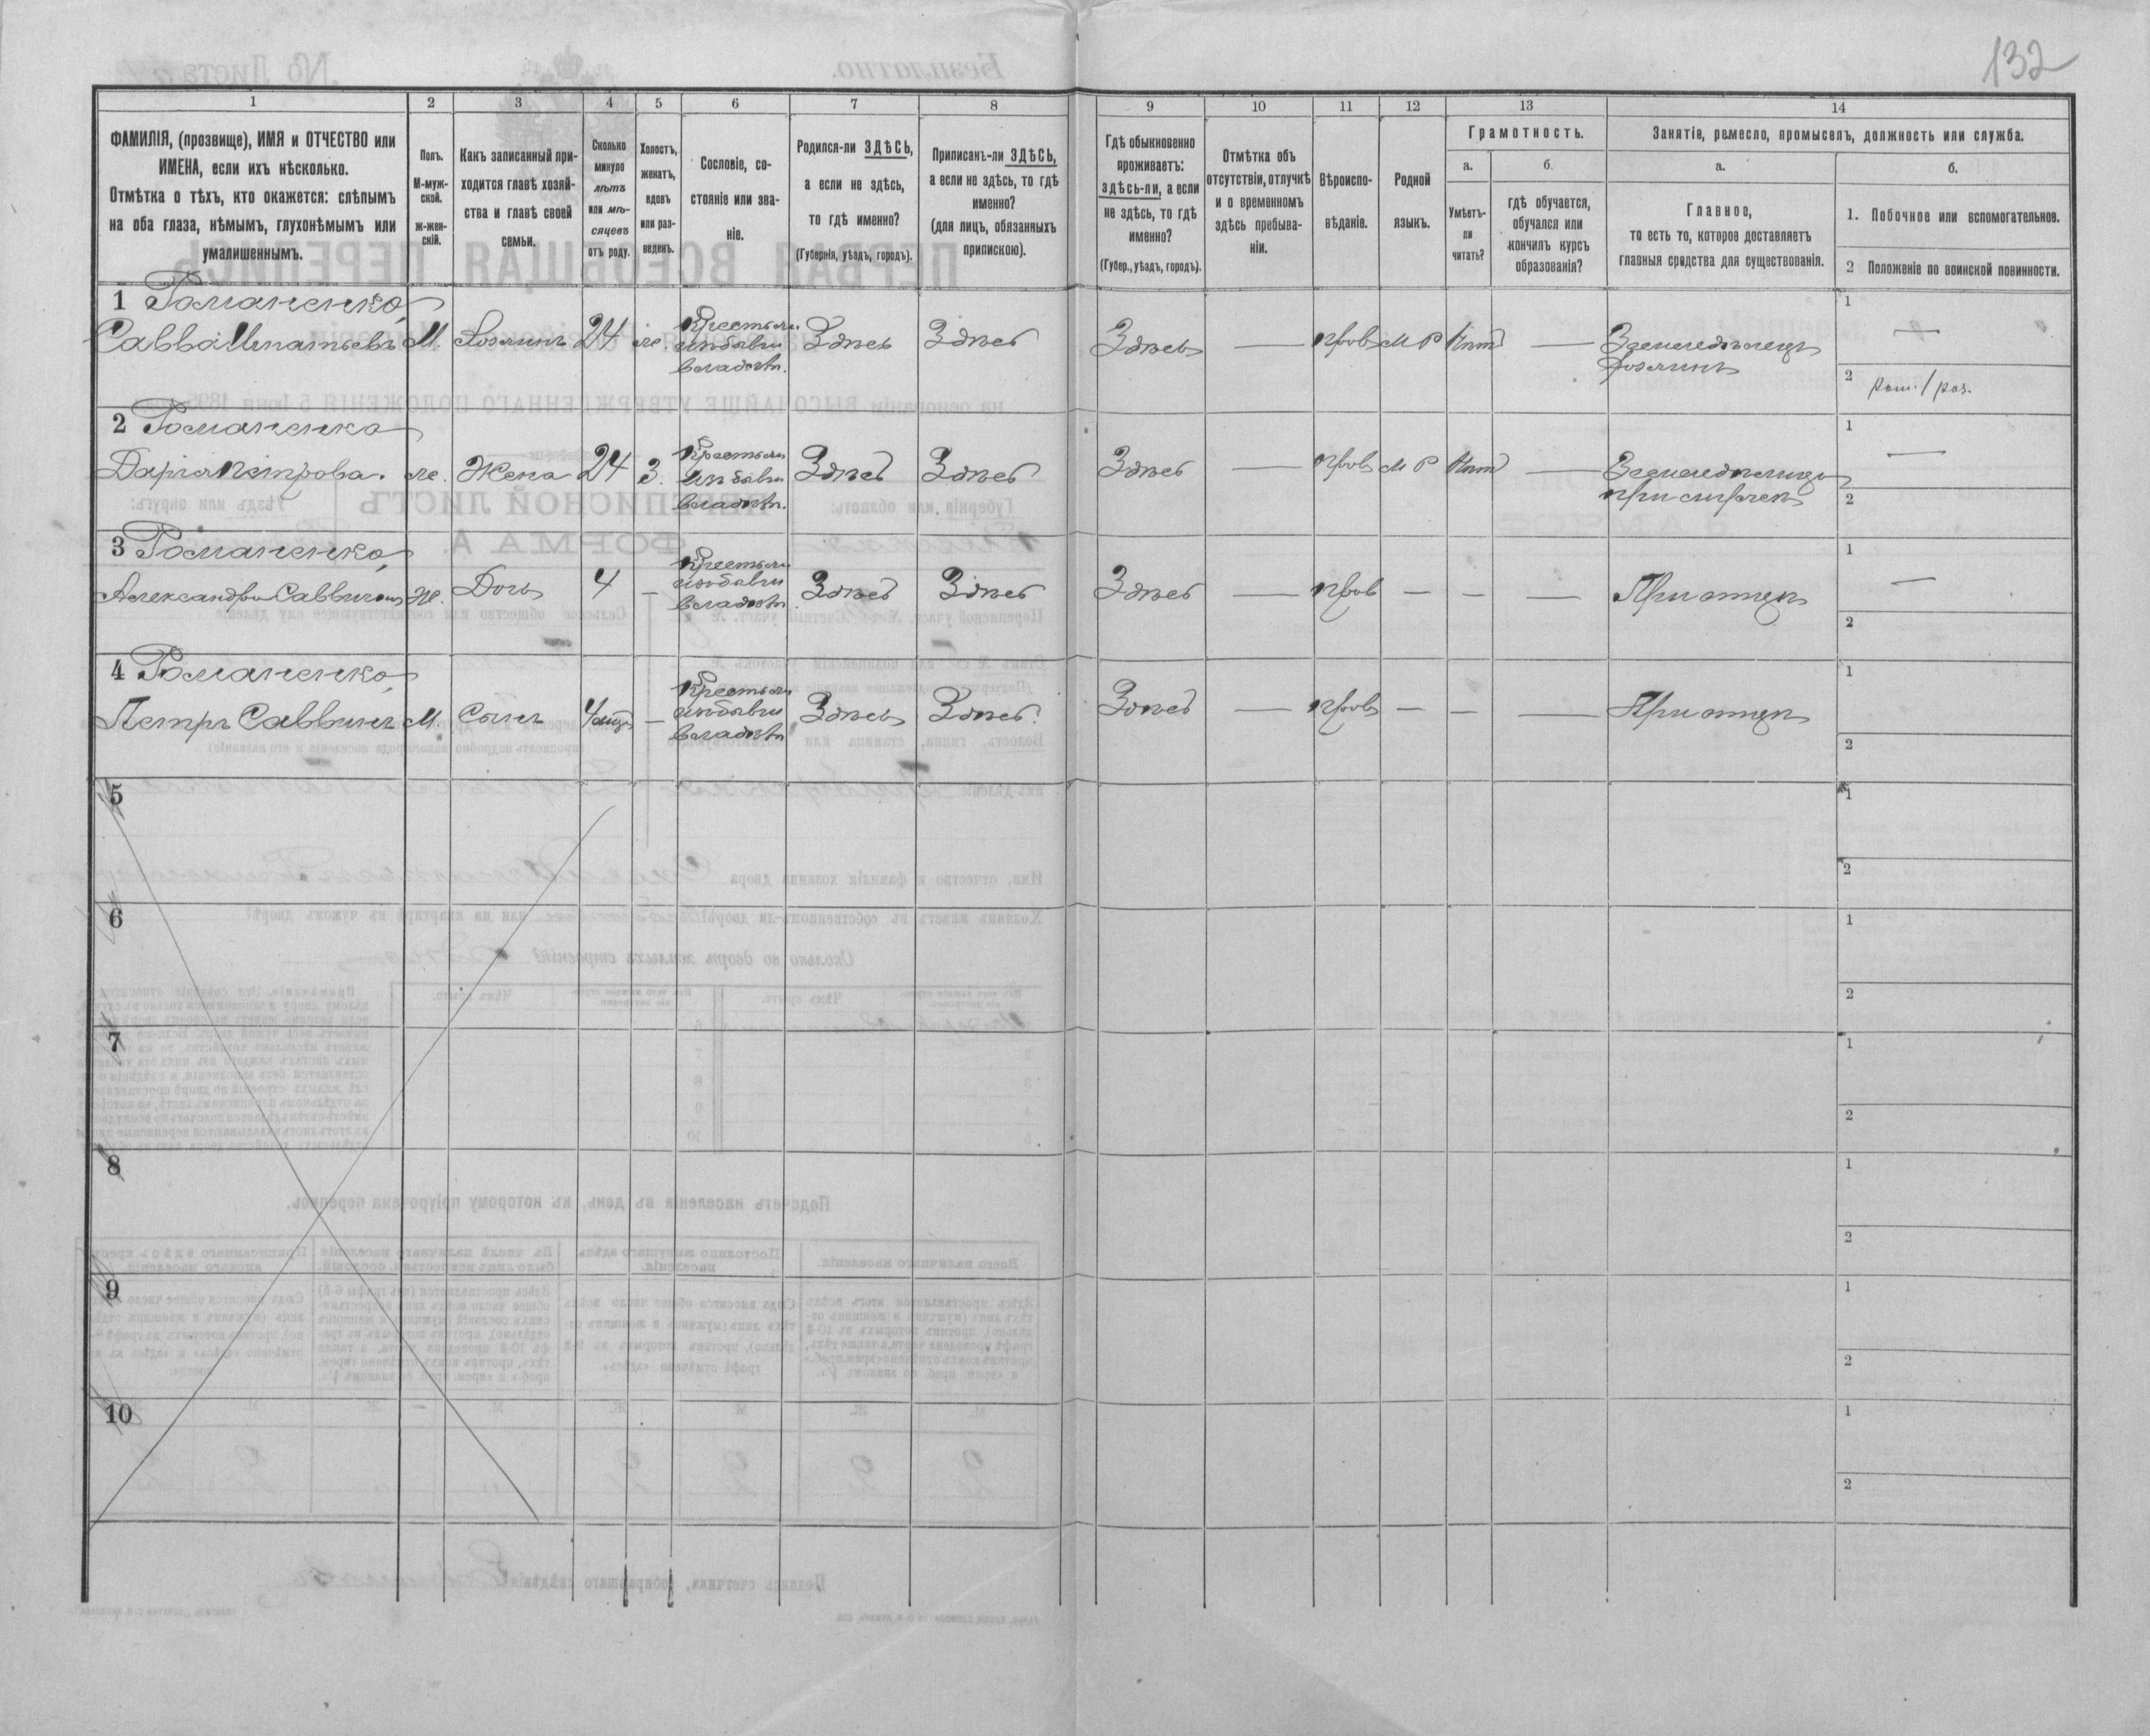 132
1
2
3
4
5
6
7
8
9
10
11
12
13
14
ФАМИЛІЯ, (прозвище), ИМЯ и ОТЧЕСТВО или
ИМЕНА, если ихъ нѣсколько.
Отмѣтка о тѣхъ, кто окажется: слѣпымъ
на оба глаза, нѣмымъ, глухонѣмымъ или
умалишеннымъ.
Полъ.
М-муж-
ской.
ж-жен-
скій.
Какъ записанный при-
ходится главѣ хозяй-
ства и главѣ своей
семьи.
Сколько
минуло
лѣтъ
или мѣ-
сяцевъ
отъ роду.
Холостъ,
женатъ,
вдовъ
или раз-
веденъ.
Сословіе, со-
стояніе или зва-
ніе.
Родился-ли ЗДѢСЬ,
а если не здѣсь,
то гдѣ именно?
(Губернія, уѣздъ, городъ).
Приписанъ-ли ЗДѢСЬ,
а если не здѣсь, то гдѣ
именно?
(для лицъ, обязанныхъ
припискою).
Гдѣ обыкновенно
проживаетъ:
здѣсь-ли, а если
не здѣсь, то гдѣ
именно?
(Губер., уѣздъ, городъ).
Отмѣтка объ
отсутствіи, отлучкѣ
и о временномъ
здѣсь пребыва-
ніи.
Вѣроиспо-
вѣданіе.
Родной
языкъ.
Грамотность.
а.
б.
Умѣетъ-
ли
читать?
гдѣ обучается,
обучался или
кончилъ курсъ
образованія?
Занятіе, ремесло, промыселъ, должность или служба.
а.
б.
Главное,
то есть то, которое доставляетъ
главныя средства для существованія.
1. Побочное или вспомогательное.
2 Положеніе по воинской повинности.
1 Романенко,
Савва Игнатьевъ М. Хозяинъ 24 ж. Крестьян. изъ бывш. владѣл. Здѣсь Здѣсь Здѣсь — прав М Р Нѣт — Земледѣлецъ
хозяинъ
1 —
2
2 Романенко
Дарія Петрова. ж. Жена 24 З. Крестьян изъ бывш владѣл. Здѣсь Здѣсь Здѣсь — прав М Р Нѣт —
1 —
2
3 Романенко,
Александра Ж. Дочь 4 — Крестьян изъ бывш владѣл Здѣсь Здѣсь Здѣсь — прав — — — При отцѣ
1 —
2
4 Романенко,
Петръ Саввинъ М. Сынъ 4 — Крестьян изъ бывш владѣл Здѣсь Здѣсь Здѣсь — прав — — — При отцѣ
1
2
5
1
2
6
1
2
7
1
2
8
1
2
9
1
2
10
1
2